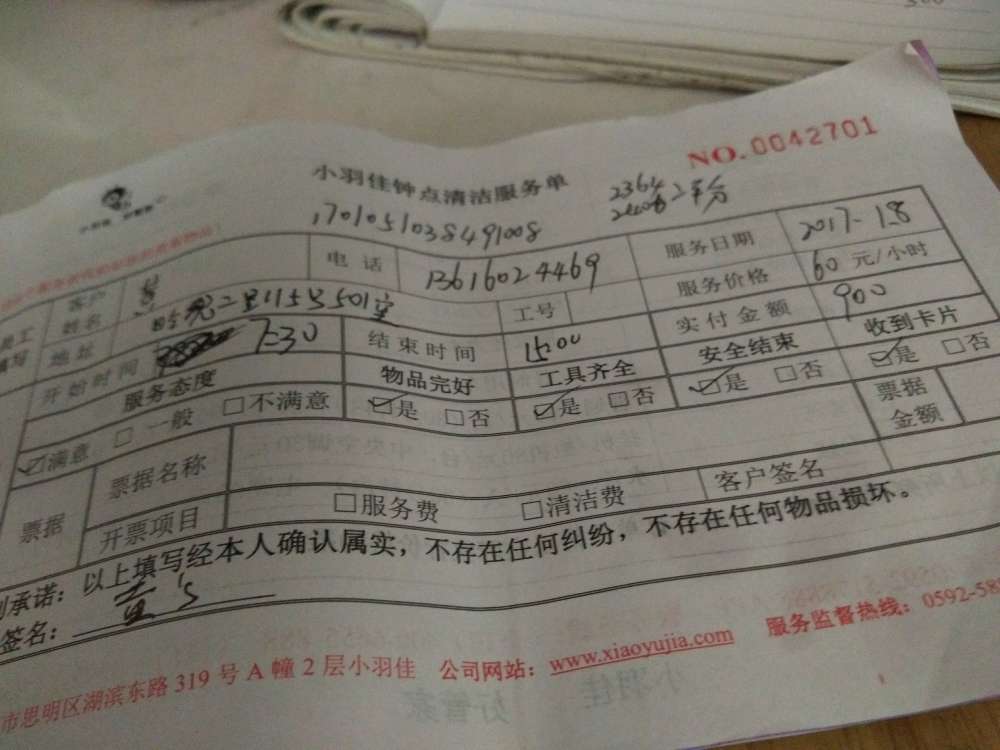 NO.0042701
小羽佳钟点清洁服务单
2364
二平分
1701051038491008
客户姓名 电话 13616024469 服务日期 2017-1.8
地址 二里115号501室 工号 服务价格 60元/小时
开始时间 7-30 结束时间 15:00 实付金额 900
服务态度 物品完好 工具齐全 安全结束 收到卡片
☑满意 □一般 □不满意 ☑是 □否 ☑是 □否 ☑是 □否 ☑是 □否
票据 票据名称 票据金额
开票项目 □服务费 □清洁费 客户签名
承诺：以上填写经本人确认属实，不存在任何纠纷，不存在任何物品损坏。
签名：
市思明区湖滨东路319号A幢2层小羽佳 公司网站：www.xiaoyujia.com 服务监督热线：0592-58